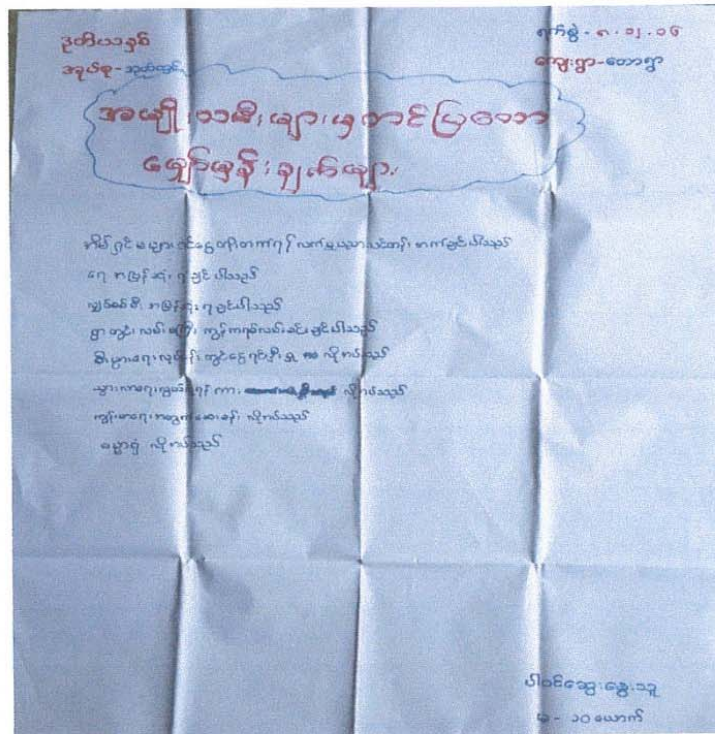 ဒုတိယနှစ်
ရက်စွဲ - ၈ . ၁၂ . ၁၆
အုပ်စု -
ကျေးရွာ - တောရွာ
အမျိုးသမီးများမှတင်ပြသော
မျှော်မှန်းချက်များ
အိမ်ရှင်မများ ဝင်ငွေတိုးတက်ရန် လက်မှုပညာသင်တန်း တက်ချင်ပါသည်
ရေ အမြန်ဆုံး ရချင်ပါသည်
လျှပ်စစ်မီး အမြန်ဆုံး ရချင်ပါသည်
ရွာတွင်း လမ်းမကြီး ကွန်ကရစ်လမ်းခင်းချင်ပါသည်
စီးပွားရေးလုပ်ငန်းတွင် ငွေရင်းနှီးမှု လိုအပ်သည်
သွားလာရေးလွယ်ကူရန် ကား လိုအပ်သည်
ကျန်းမာရေးအတွက် ဆေးခန်း လိုအပ်သည်
လိုအပ်သည်
ပါဝင်ဆွေးနွေးသူ
မ - ၁၀ ယောက်